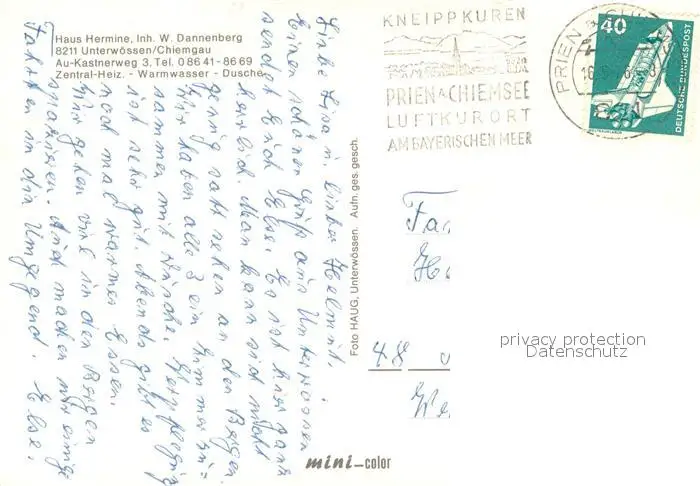 Haus Hermine, Inh. W. Dannenberg
8211 Unterwössen/Chiemgau
Au-Kastnerweg 3, Tel. 0 86 41 - 86 69
Zentral-Heiz. - Warmwasser - Dusche
KNEIPPKUREN
PRIEN A CHIEMSEE
LUFTKURORT
AM BAYERISCHEN MEER
PRIEN a CHI
40
DEUTSCHE BUNDESPOST
WELTRAUMLABOR
Liebe Lisa u. lieber Helmut!
Einen schönen Gruß aus Unterwössen
sendet Euch Else. Es ist hier ganz
herrlich. Man kann sich nicht
genug satt sehen an den Bergen.
Wir haben alle 3 ein Zimmer zu=
sammen mit Dusche. Verpflegung
ist sehr gut. Abends gibt es
noch mal warmes Essen.
Wir gehen viel in den Bergen
spazieren. Auch machen wir einige
Fahrten in die Umgegend. Else.
Foto HAUG, Unterwössen. Aufn. ges. gesch.
Fa
48
mini-color
privacy protection
Datenschutz